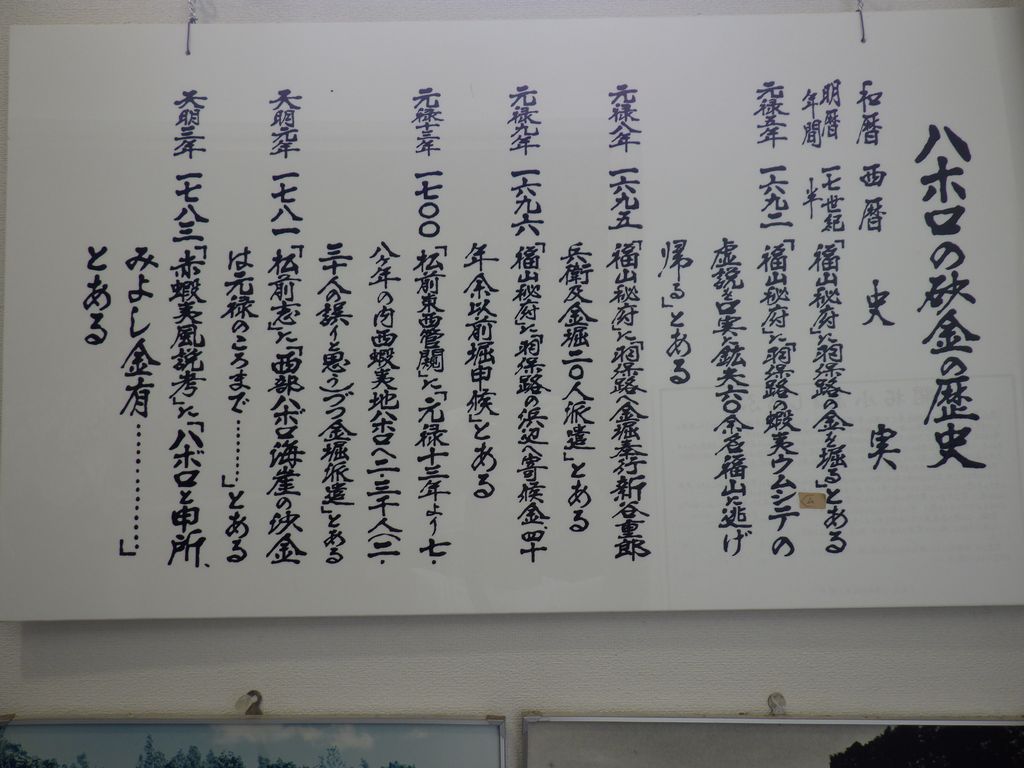 ハホロの砂金の歴史
和暦 西暦 史実
明暦年間 一七世紀半 「福山秘府」に羽保路へ金を堀る」とある
元禄五年 一六九二 「福山秘府」に羽保路の蝦夷ウムシテの
虚説を口実に鉱夫六〇余名福山に逃げ
帰る」とある
元禄八年 一六九五 「福山秘府」に「羽保路へ金堀奉行新谷重郎
兵衛友金堀二〇人派遣」とある
元禄九年 一六九六 「福山秘府」に羽保路の浜辺へ寄候金、四十
年余以前堀申候」とある
元禄十三年 一七〇〇 「松前東西管闚」に「元禄十三年より七・
八ヶ年の内西蝦夷地ホロへ二・三千人(二・
三十人の誤りと思う)づつ金堀派遣」とある
天明元年 一七八一 「松前志」に「西部ハボロ海崖の沙金
は元禄のころまで………」とある
天明三年 一七八三 「赤蝦夷風説考」に「ハボロと申所、
みよし金有…………」
とある